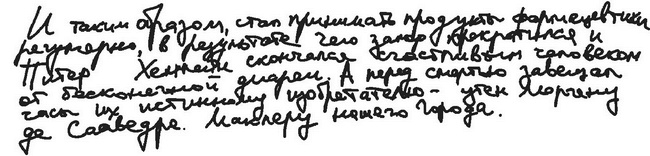 И таким образом, стал принимать продукты фармацевтики
регулярно, в результате чего запор прекратился и
Питер Хенлейн скончался счастливым человеком
от бесконечной диареи. А перед смертью завещал
часы их истинному изобретателю - утен Моргену
де Сааведре. Маклеру нашего города.